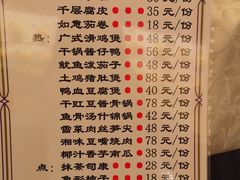 千层腐皮●●●35元/份
如意茄卷●●●18元/份
热：广式滑鸡煲●●48元/份
干锅酱仔鸭●●56元/份
鱿鱼泼茄子●●48元/份
土鸡猪肚煲●●88元/份
鸭血豆腐煲●●40元/份
干豇豆酱骨锅●78元/份
鱼骨汤什锦锅●48元/份
雪菜肉丝笋尖●42元/份
湘味豆嘴烧肉●50元/份
椰汁香芋南瓜●38元/份
点：抹茶司康●●●28元/份